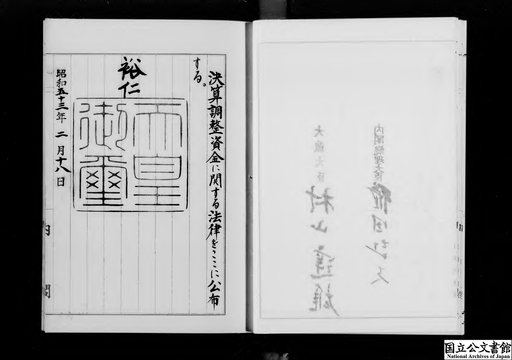 決算調整資金に関する法律をここに公布
する。
裕仁
天皇
御璽
昭和五十三年二月十八日
内閣
内閣総理大臣
福田赳夫
大蔵大臣
村山達雄
国立公文書館
National Archives of Japan